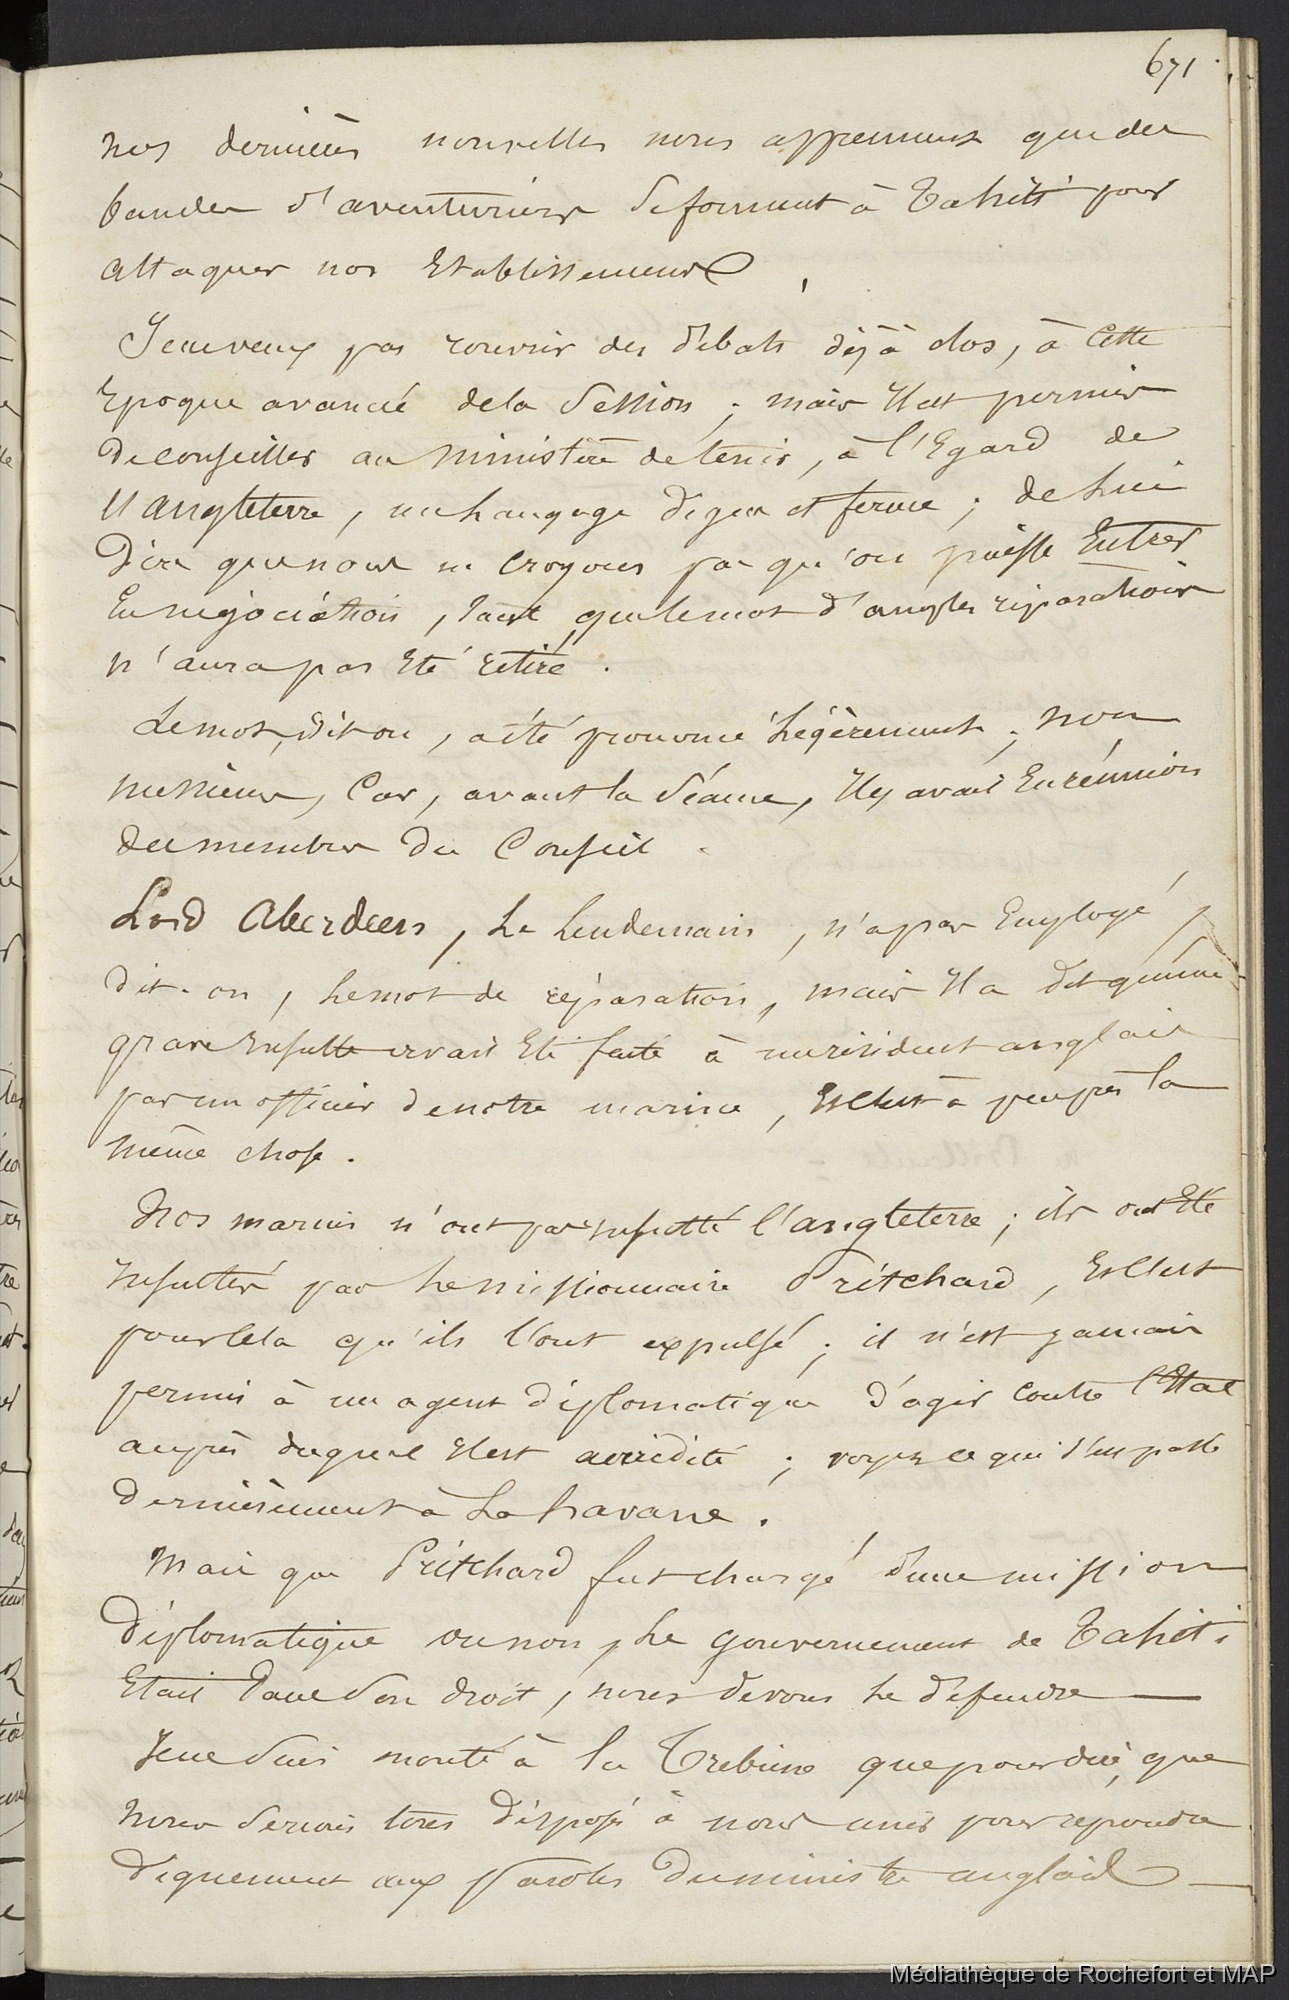 671
Nos dernières nouvelles nous apprennent que des
bandes d'aventuriers se forment à Tahiti pour
attaquer nos Etablissemens,
Je ne veux pas rouvrir des débats déjà clos, à cette
Epoque avancé de la session ; mais Il est permis
de conseiller au ministère de tenir, à l'Egard de
l'angleterre, un langage digne et ferme ; de lui
dire que nous ne croyons pas qu'on puisse Entrer
En négociation, tant que le mot d'anglas réparation
n'aura pas Eté retiré.
Le mot, dit on, a été prononcé légèrement ; non
messieurs, Car, avant la séance, Il y avait Eu réunion
des membres du Conseil.
Lord Aberdeen, Le lendemain, n'a pas Employé,
dit-on, le mot de réparation, mais Il a dit qu'une
grave Insulte avait Eté faite à un résident anglais
par un officier de notre marine, Et C'est à peu près la
même chose.
Nos marins n'ont pas Insulté l'angleterre ; ils ont Eté
Insultés par le missionnaire Pritchard, Et C'est
pour Cela qu'ils l'ont expulsé ; il n'est jamais
permis à un agent diplomatique d'agir Contre l'Etat
auprès duquel Il est accrédité ; voyez ce qui s'est passé
dernièrement à La havane.
Mais que Pritchard fut chargé d'une mission
diplomatique ou non, Le gouvernement de Tahiti
Etait Dans son droit, nous devons le défendre
Je ne suis monté à la Tribune que pour dire, que
nous serions tous disposés à nous unir pour répondre
dignement aux paroles du ministre anglais
Médiathèque de Rochefort et MAP